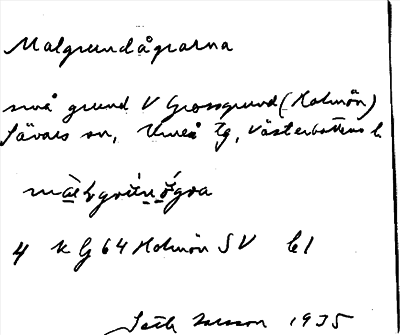 Malgrundågrarna
små grund V Grossgrund (Holmön)
Sävars sn, Umeå tg, Västerbottens l.
4 k bg 64 Holmön SV b1
Larsson 1935